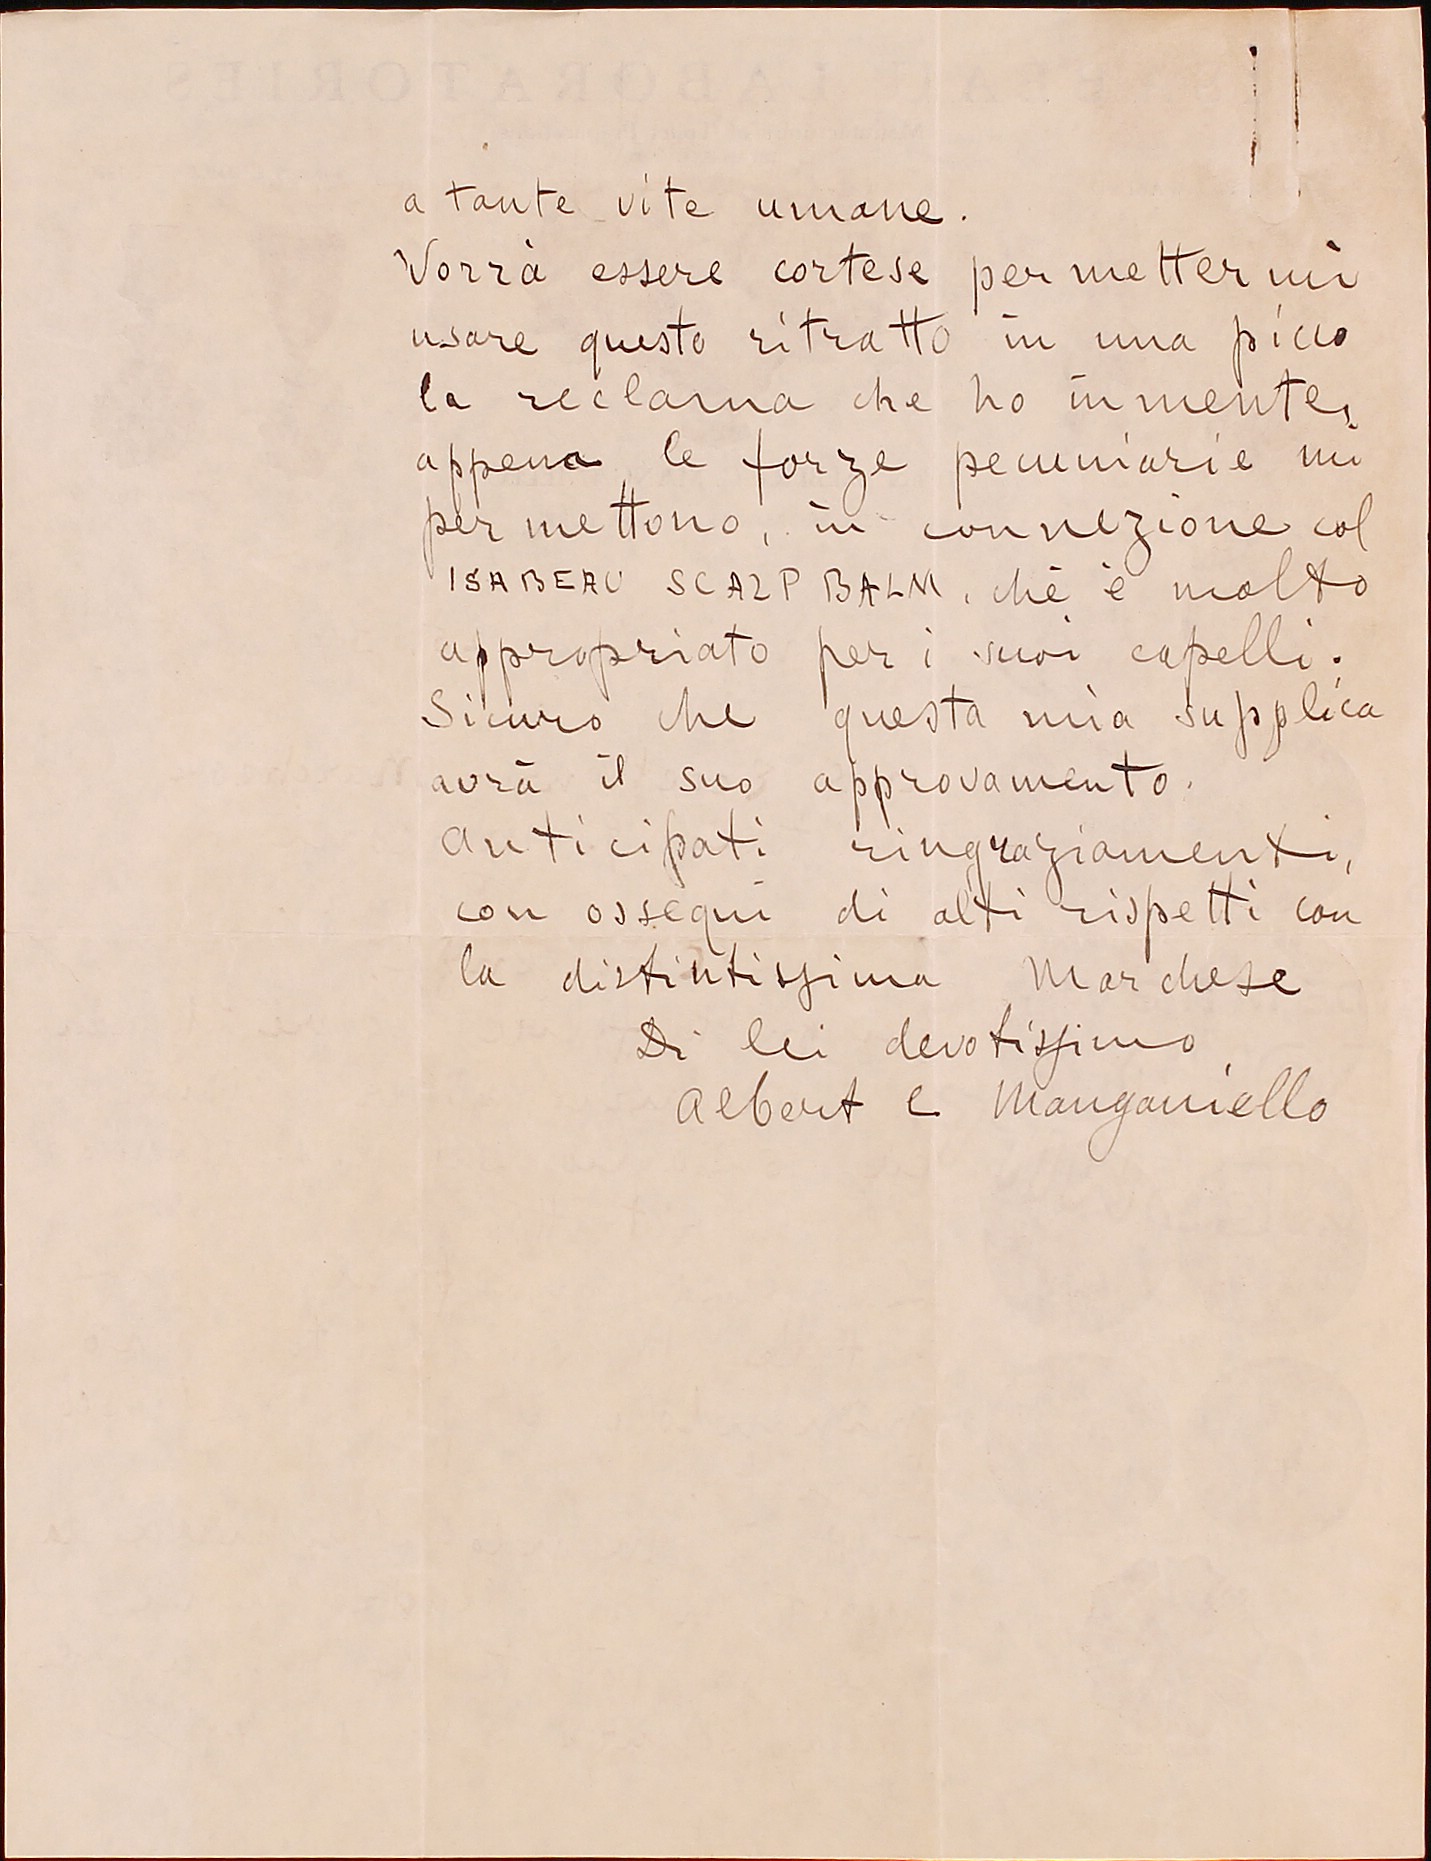 a tante vite umane.
Vorrà essere cortese permettermi
usare questo ritratto in una picco
la reclama che ho in mente,
appena le forze pecuniarie mi
permettono, in connezione col
ISABEAU SCALP BALM, che è molto
appropriato per i suoi capelli.
Sicuro che questa mia supplica
avrà il suo approvamento.
Anticipati ringraziamenti,
con ossequi di alti rispetti con
la distintissima Marchese
Di lei devotissimo
Albert E Manganiello